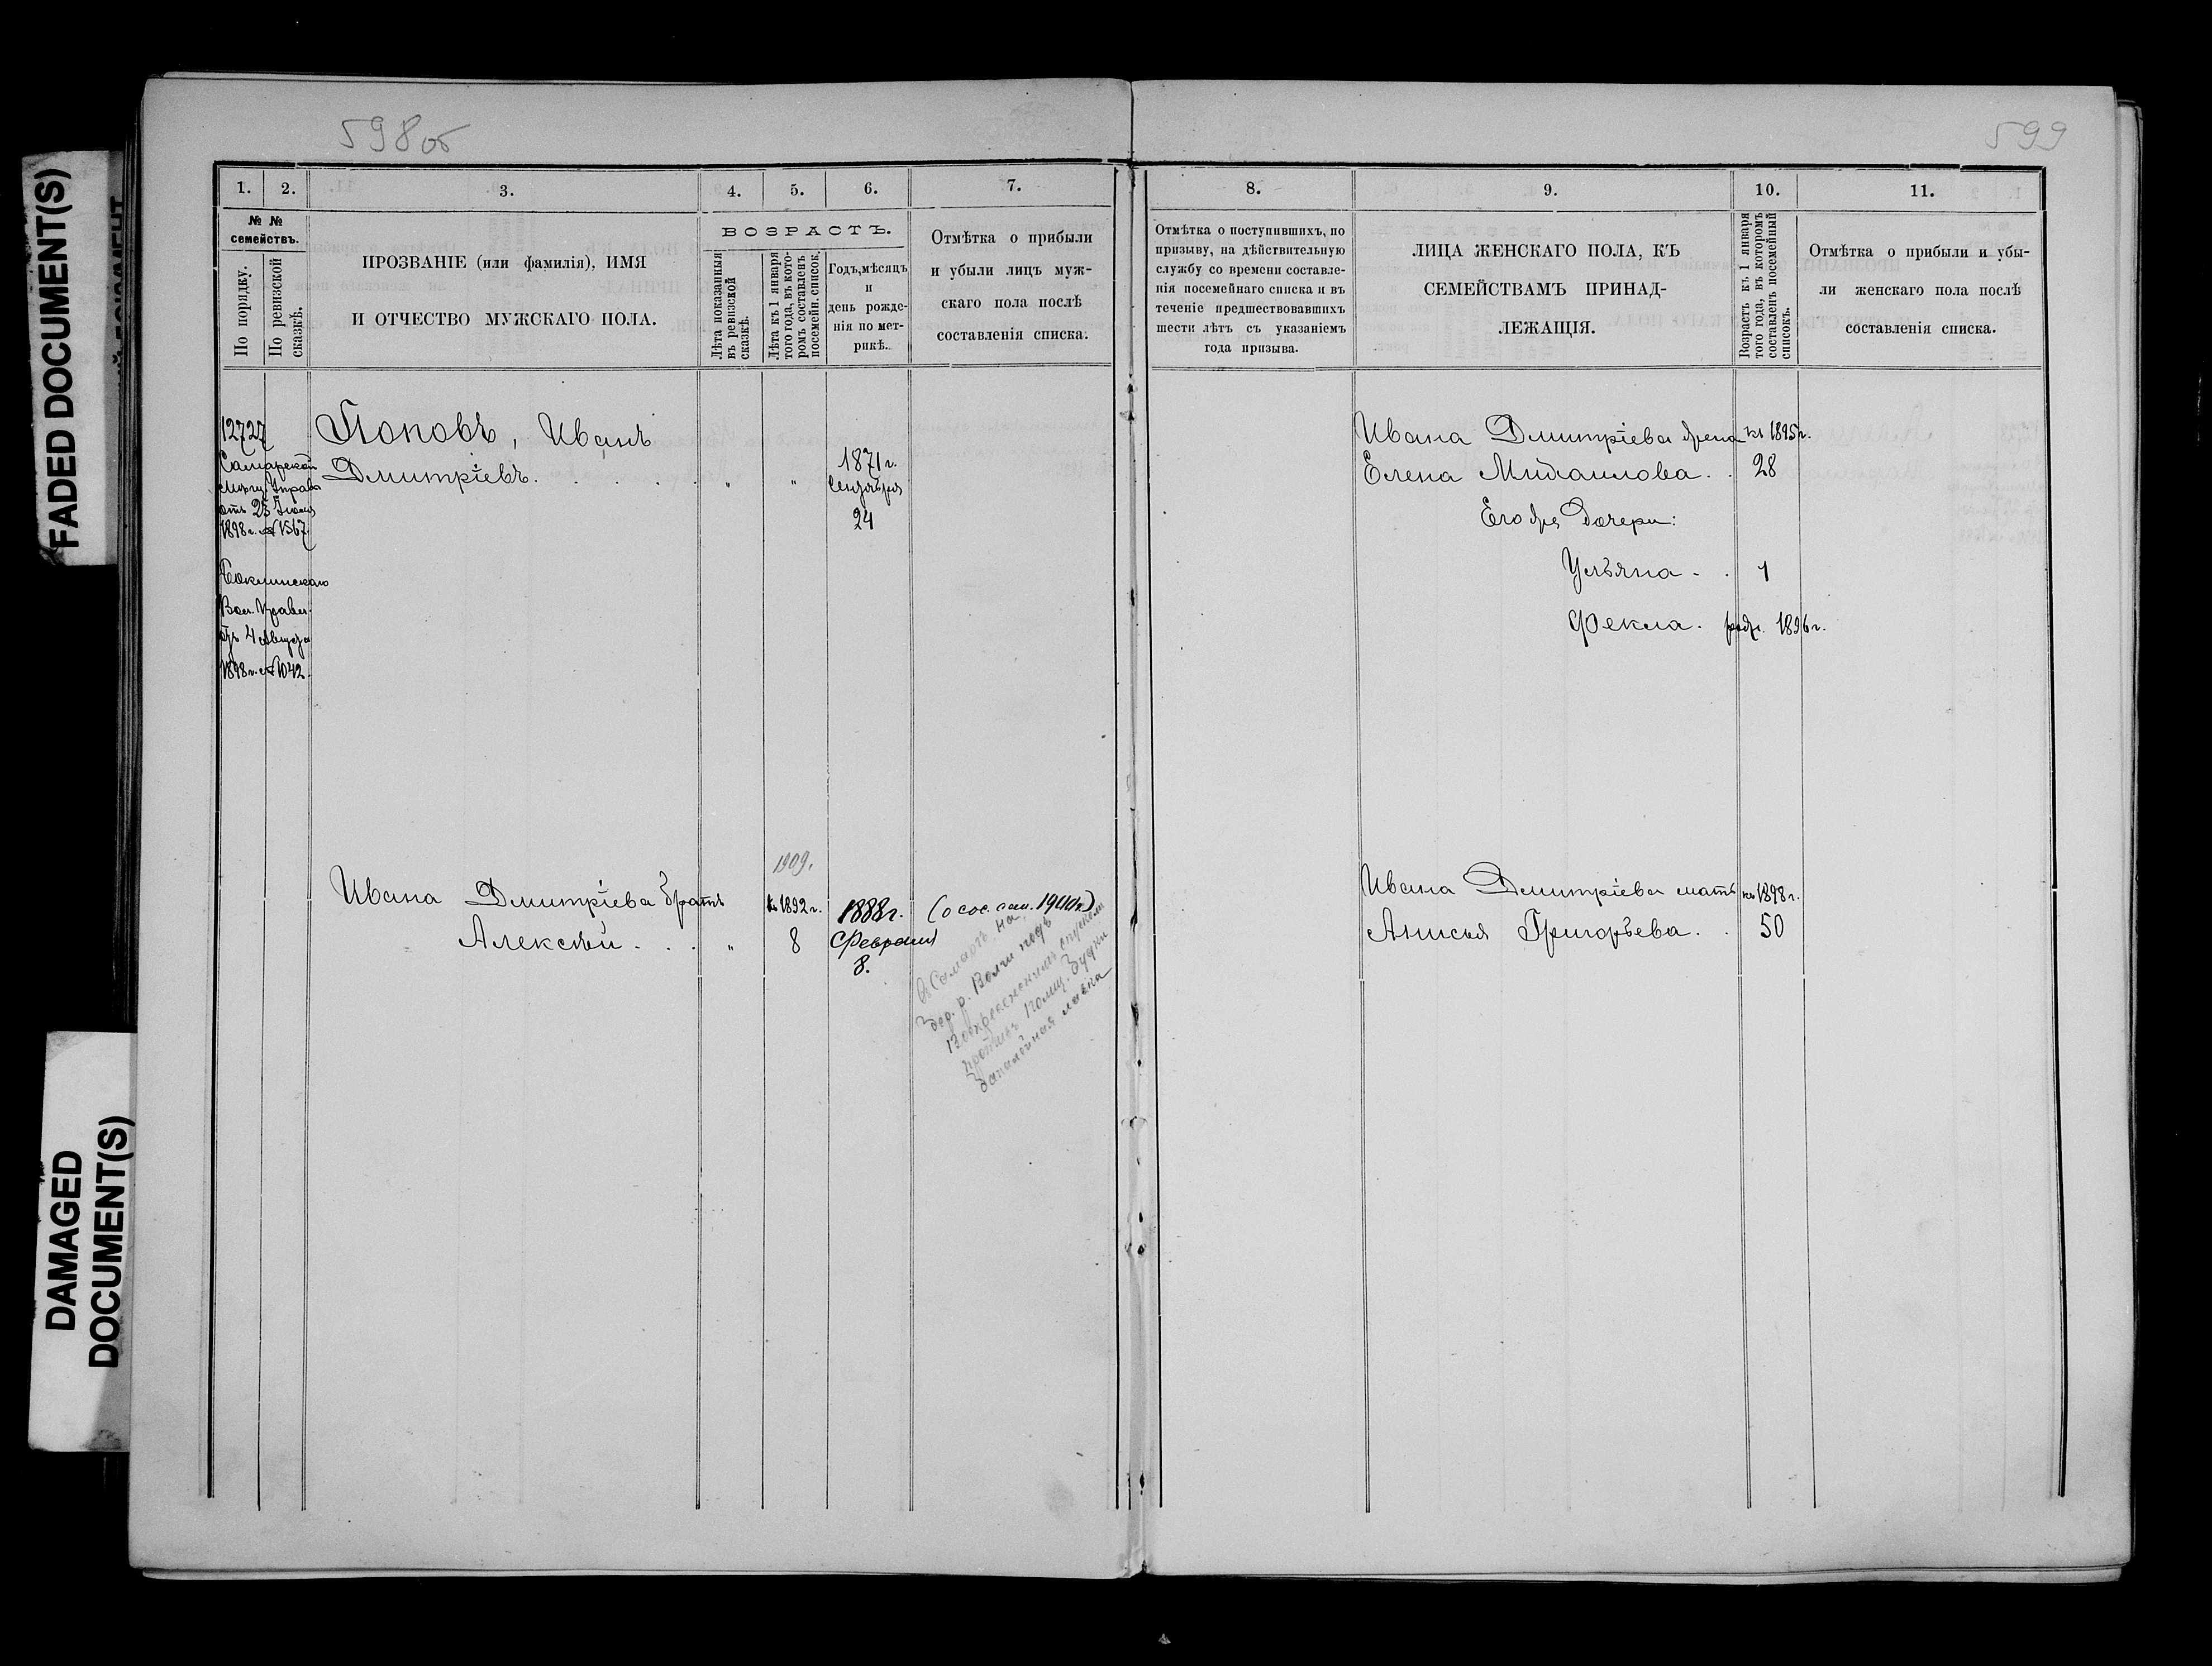 FADED DOCUMENT(S)
DAMAGED
DOCUMENT(S)
598об
1.
2.
3.
4.
5.
6.
7.
№ №
семействъ.
По порядку.
По ревизской
сказкѣ.
ПРОЗВАНІЕ (или фамилія), ИМЯ
И ОТЧЕСТВО МУЖСКАГО ПОЛА.
ВОЗРАСТЪ.
Лѣта показанныя
въ ревизской
сказкѣ.
Лѣта къ 1 января
того года, въ кото-
ромъ составленъ
посемейн. список.
Годъ, мѣсяцъ
и
день рожде-
нія по мет-
рикѣ.
Отмѣтка о прибыли
и убыли лицъ муж-
скаго пола послѣ
составленія списка.
12727
Самарской
Мѣщ. Управы
отъ 25 Іюля
1898 г. № 1567.
Вол. Правл.
отъ 4 Августа
1898 г. № 1042.
Поповъ, Иванъ
Дмитріевъ. . . . . „ „
1871 г.
Сентября
24
1909.
Ивана Дмитріева братъ
Алексѣй . . . „
къ 1892 г.
8
1888 г.
Февраля
8.
(о сос. сем. 1910 г.)
въ Самарѣ, на
бер. р. Волги подъ
Воскресенскимъ спускомъ
противъ Полиц. Будки
лавка
599
8.
9.
10.
11.
Отмѣтка о поступившихъ, по
призыву, на дѣйствительную
службу со времени составле-
нія посемейнаго списка и въ
теченіе предшествовавшихъ
шести лѣтъ съ указаніемъ
года призыва.
ЛИЦА ЖЕНСКАГО ПОЛА, КЪ
СЕМЕЙСТВАМЪ ПРИНАД-
ЛЕЖАЩІЯ.
Возрастъ къ 1 января
того года, въ которомъ
составленъ посемейный
списокъ.
Отмѣтка о прибыли и убы-
ли женскаго пола послѣ
составленія списка.
Ивана Дмитріева жена къ 1895 г.
Елена Михаилова. . 28
Его же дочери:
Ульяна. . 1
Фекла. родн. 1896 г.
Ивана Дмитріева мать къ 1898 г.
Анисья Григорьева. . 50